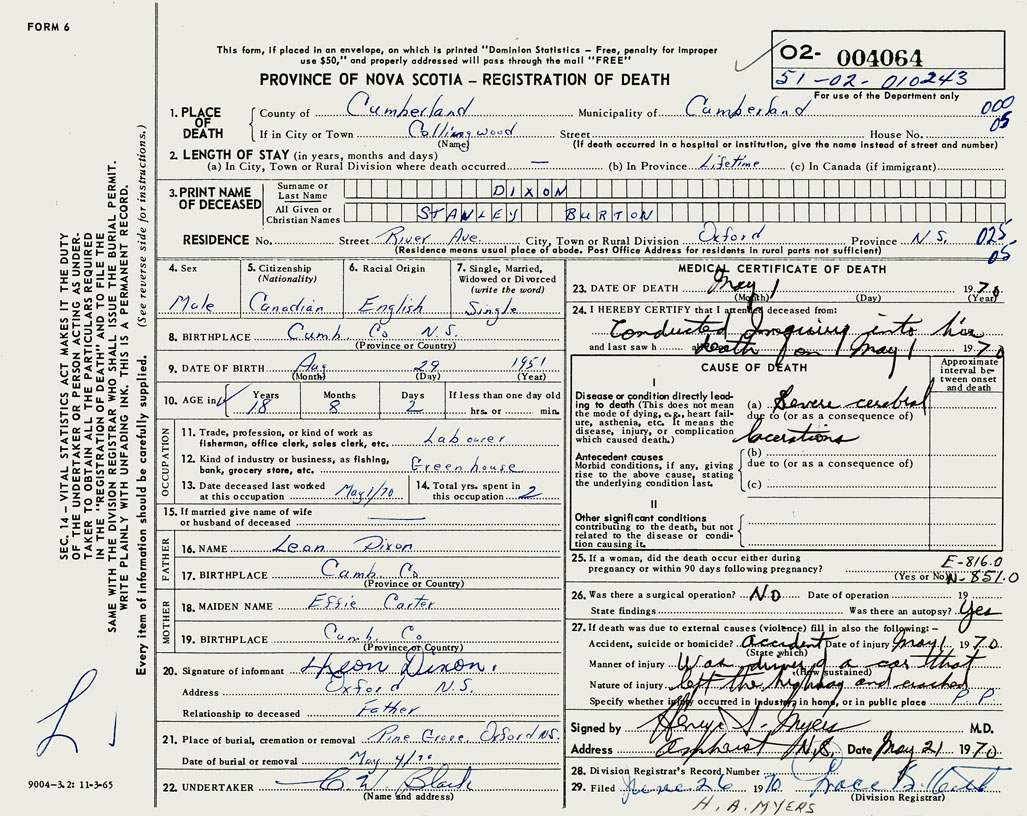 FORM 6
This form, if placed in an envelope, on which is printed "Dominion Statistics – Free, penalty for improper
use $50," and properly addressed will pass through the mail "FREE"
PROVINCE OF NOVA SCOTIA – REGISTRATION OF DEATH
02- 004064
51-02-010243
For use of the Department only
1. PLACE OF DEATH
County of Cumberland Municipality of Cumberland 000
If in City or Town Collingwood Street House No. 05
(Name) (If death occurred in a hospital or institution, give the name instead of street and number)
2. LENGTH OF STAY (in years, months and days)
(a) In City, Town or Rural Division where death occurred — (b) In Province Lifetime (c) In Canada (if immigrant)
3. PRINT NAME OF DECEASED
Surname or Last Name DIXON
All Given or Christian Names STANLEY BURTON
RESIDENCE No. Street River Ave. City, Town or Rural Division Oxford Province N.S. 025
(Residence means usual place of abode. Post Office Address for residents in rural parts not sufficient) 05
4. Sex Male
5. Citizenship (Nationality) Canadian
6. Racial Origin English
7. Single, Married, Widowed or Divorced (write the word) Single
8. BIRTHPLACE Cumb. Co N.S.
(Province or Country)
9. DATE OF BIRTH Aug 29 1951
(Month) (Day) (Year)
10. AGE in Years 18 Months 8 Days 2 If less than one day old hrs. or min.
OCCUPATION
11. Trade, profession, or kind of work as
fisherman, office clerk, sales clerk, etc. Labourer
12. Kind of industry or business, as fishing,
bank, grocery store, etc. Greenhouse
13. Date deceased last worked
at this occupation May 1/70
14. Total yrs. spent in
this occupation 2
15. If married give name of wife
or husband of deceased —
FATHER
16. NAME Leon Dixon
17. BIRTHPLACE Cumb. Co.
(Province or Country)
MOTHER
18. MAIDEN NAME Effie Carter
19. BIRTHPLACE Cumb. Co
(Province or Country)
20. Signature of informant Leon Dixon.
Address Oxford N.S.
Relationship to deceased Father
21. Place of burial, cremation or removal Pine Grove, Oxford NS.
Date of burial or removal May 4/70
22. UNDERTAKER C. W. Black
(Name and address)
MEDICAL CERTIFICATE OF DEATH
23. DATE OF DEATH May 1 1970
(Month) (Day) (Year)
24. I HEREBY CERTIFY that I attended deceased from:
Conducted Inquiry into his
and last saw h death on 1 May 1 1970
CAUSE OF DEATH
Approximate interval between onset and death
I
Disease or condition directly leading to death (This does not mean the mode of dying, e.g., heart failure, asthenia, etc. It means the disease, injury, or complication which caused death.)
(a) Severe cerebral
due to (or as a consequence of)
lacerations
Antecedent causes
Morbid conditions, if any, giving rise to the above cause, stating the underlying condition last.
(b)
due to (or as a consequence of)
(c)
II
Other significant conditions
contributing to the death, but not related to the disease or condition causing it.
25. If a woman, did the death occur either during
pregnancy or within 90 days following pregnancy?
(Yes or No)
E-816.0
N-851.0
26. Was there a surgical operation? NO Date of operation 19
State findings Was there an autopsy? Yes
27. If death was due to external causes (violence) fill in also the following:–
Accident, suicide or homicide? accident Date of injury May 1 1970
(State which)
Manner of injury Was driver of a car that
(How sustained)
Nature of injury left the highway and crashed
Specify whether injury occurred in industry, in home, or in public place P P
Signed by Henry A. Myers M.D.
Address Amherst N.S. Date May 21 1970
28. Division Registrar's Record Number
29. Filed June 26 1970
(Division Registrar)
H. A. MYERS
SEC. 14 – VITAL STATISTICS ACT MAKES IT THE DUTY
OF THE UNDERTAKER OR PERSON ACTING AS UNDER-
TAKER TO OBTAIN ALL THE PARTICULARS REQUIRED
IN THE "REGISTRATION OF DEATH" AND TO FILE THE
SAME WITH THE DIVISION REGISTRAR WHO SHALL ISSUE THE BURIAL PERMIT.
WRITE PLAINLY WITH UNFADING INK. THIS IS A PERMANENT RECORD.
Every item of information should be carefully supplied. (See reverse side for instructions.)
9004-3.2: 11-3-65